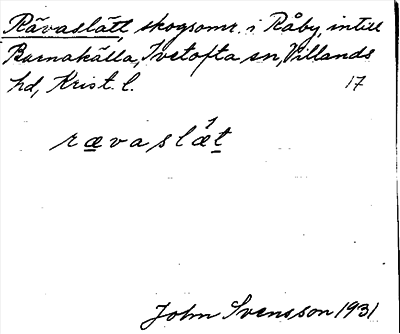 Rävaslätt, skogsomr. i Råby, intill
Barnakälla, Ivetofta sn, Villands
hd, Krist. l. 17
rævaslæ̍t
John Svensson 1931